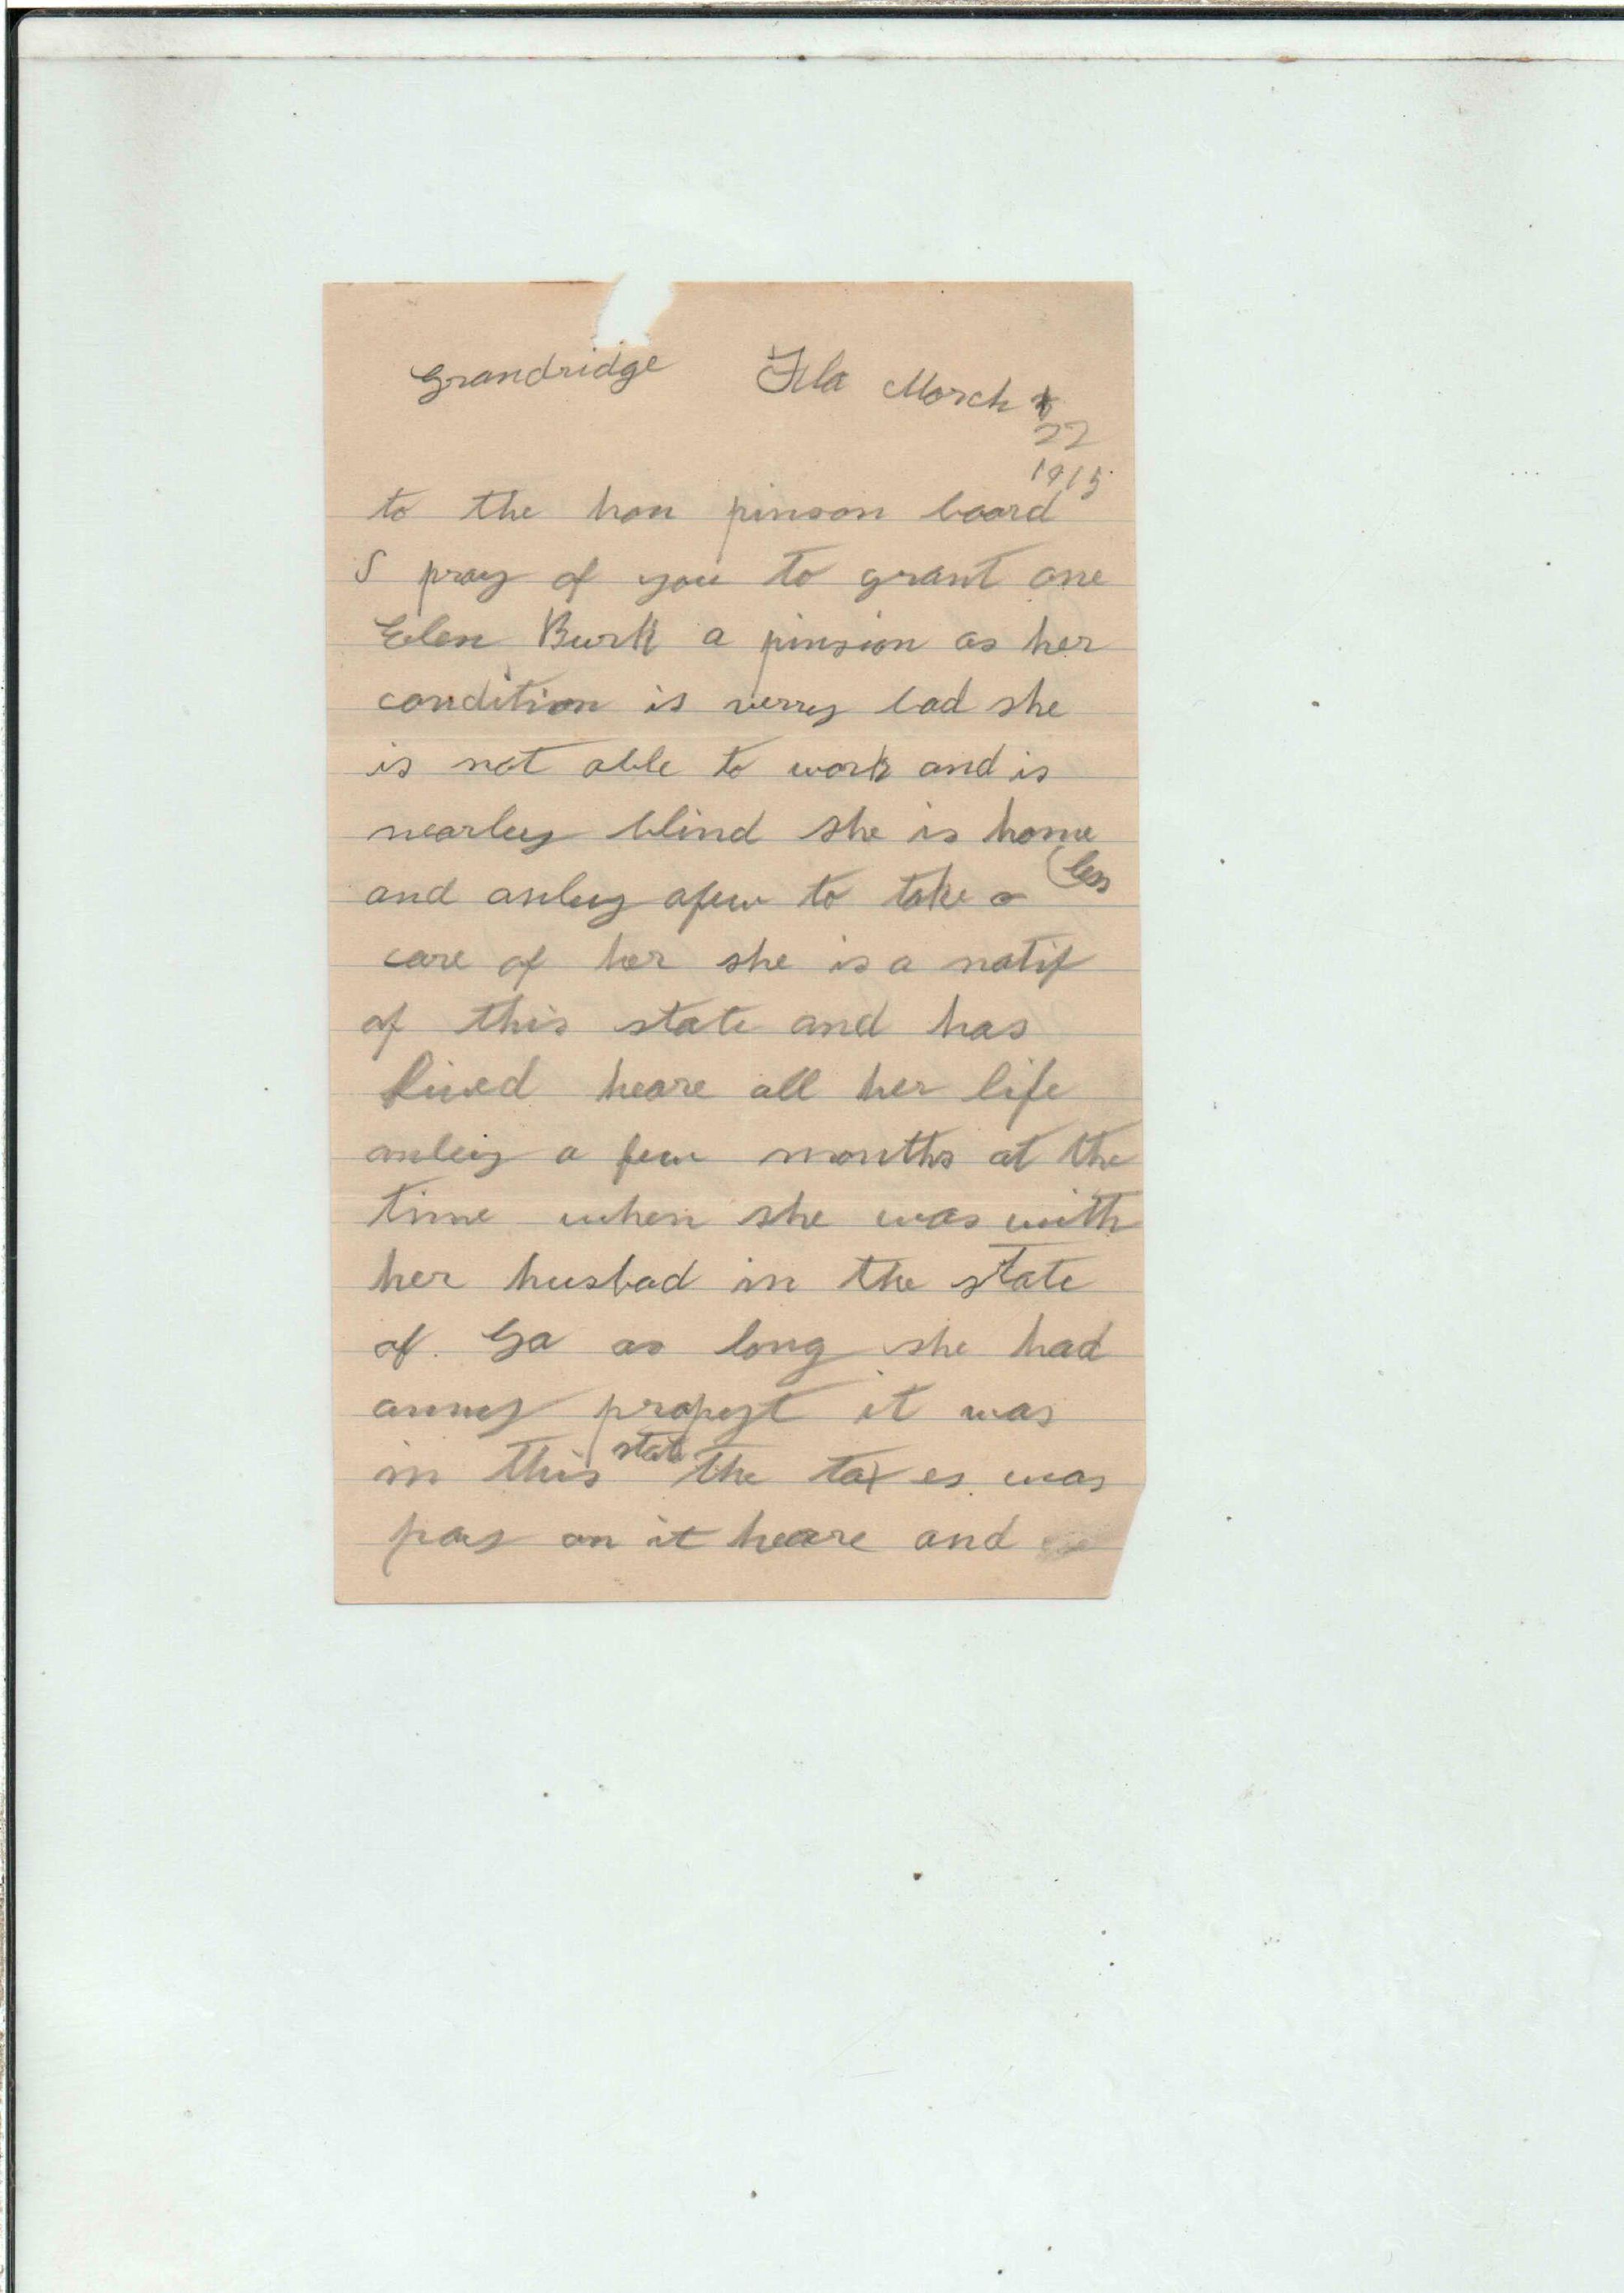 Grandridge Fla March
22
1915
to the hon pinson board
I pray of you to grant one
Elen Burk a pinsion as her
condition is verry bad she
is not able to work and is
nearley blind she is home
less
and onley afew to take a
care of her she is a natif
of this state and has
lived heare all her life
onley a few months at the
time when she was with
her husbad in the state
of Ga as long she had
anney propyt it was
in this state the taxes was
pay on it heare and